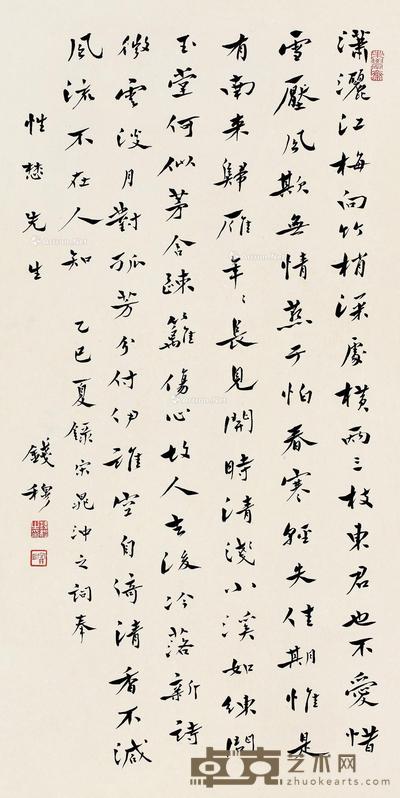 瀟灑江梅向竹梢深處橫兩三枝東君也不愛惜
雪壓風欺無情燕子怕春寒輕失佳期惟是
有南來歸雁年〻長見開時清淺小溪如練問
玉堂何似茅舍疎籬傷心故人去後冷落新詩
微雲淡月對孤芳分付伊誰空自倚清香不減
風流不在人知 乙巳夏錄宋晁沖之詞奉
性先生 錢穆
卓克艺术网
zhuokearts.com